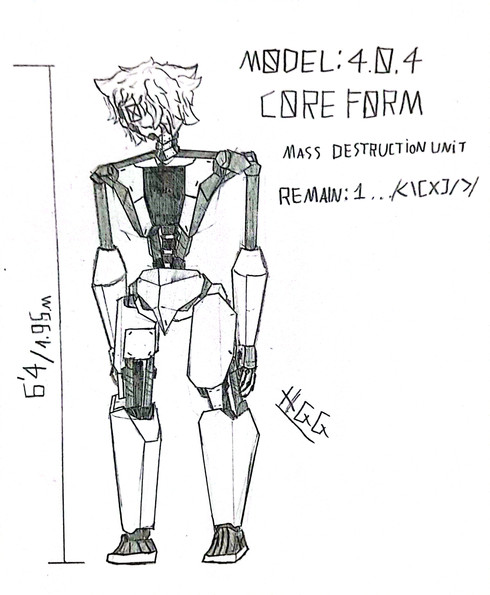 MODEL: 4.0.4
CORE FORM
MASS DESTRUCTION UNIT
REMAIN: 1 .../<\[X]/>/
6'4/1.95м
HGG